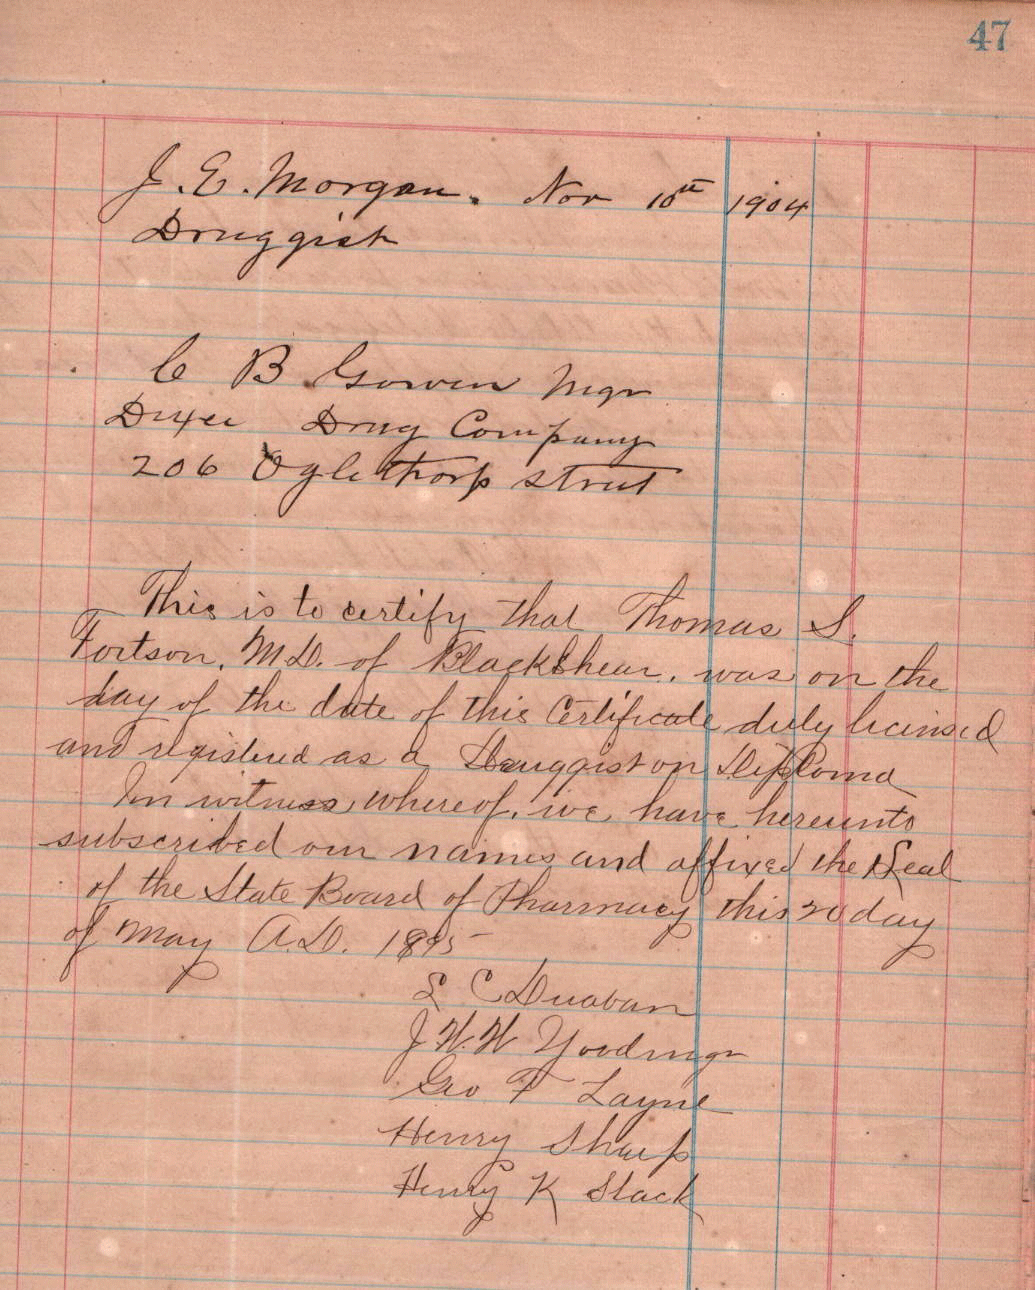 47
J. E. Morgan. Nov 10th 1904
Druggist
C B Gowen Mgr
Dixee Drug Company
206 Oglethorp Street
This is to certify that Thomas S.
Fortson, M.D. of Blackshear, was on the
day of the date of this Certificate duly licensed
and registered as a Druggist on Diploma
In witness whereof, we have hereunto
subscribed our names and affixed the Seal
of the State Board of Pharmacy this 20 day
of May A.D. 1895
S C
J W. W
Geo F Layne
Henry Sharp
Henry K Slack